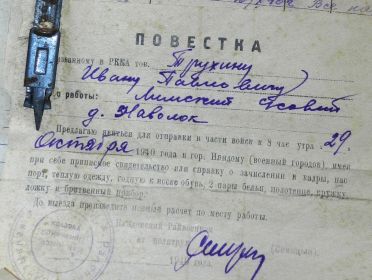 ПОВЕСТКА
званному в РККА тов. Трухину
Ивану Павловичу
работы:
д. Наволок
Предлагаю явиться для отправки в части войск к 8 час утра 29
Октября 1940 года в гор. (военный городок) имея
при себе приписное свидетельство или справку о зачислении в кадры, пас
порт, теплую одежду, годную к носке обувь, 2 пары белья, полотенце, кружку
ложку и бритвенный прибор.
До выезда произведите полный расчет по месту работы.
Райвоенком